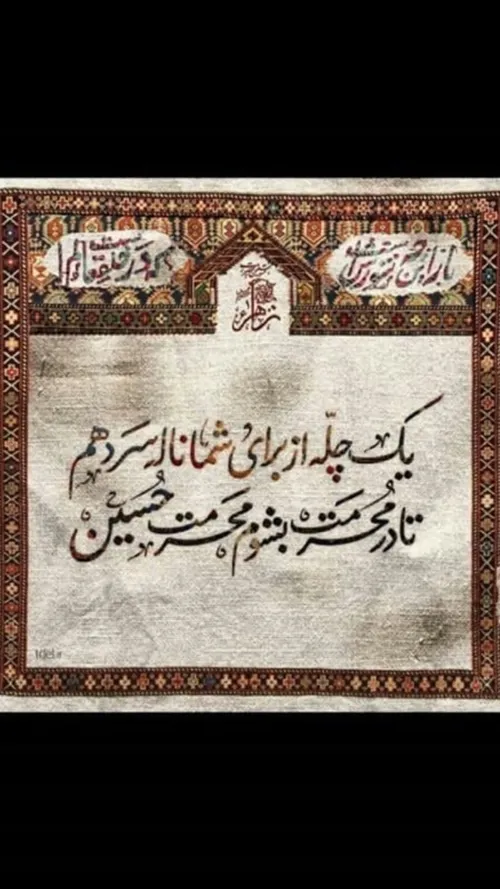 باز این چه شورش است
که در خلق عالم
زهرا
یک چلّه از برای شما ناله سر دهم
تا در مُحرمت بشوم محرمت حُسین